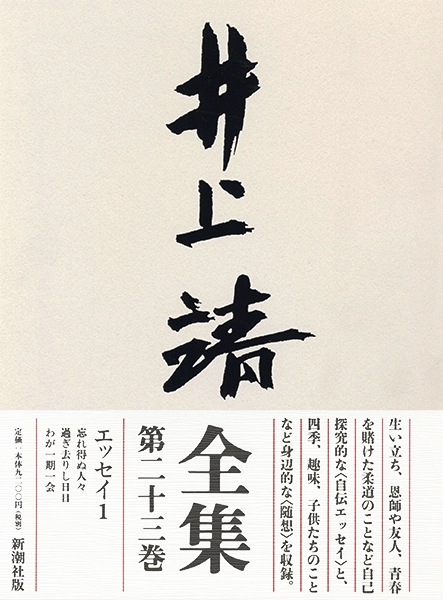 井上靖
全集
第二十三巻
生い立ち、恩師や友人、青春
を賭けた柔道のことなど自己
探究的な〈自伝エッセイ〉と、
四季、趣味、子供たちのこと
など身辺的な〈随想〉を収録。
エッセイ1
忘れ得ぬ人々
過ぎ去りし日日
わが一期一会
定価:本体九二〇〇円(税別)
新潮社版